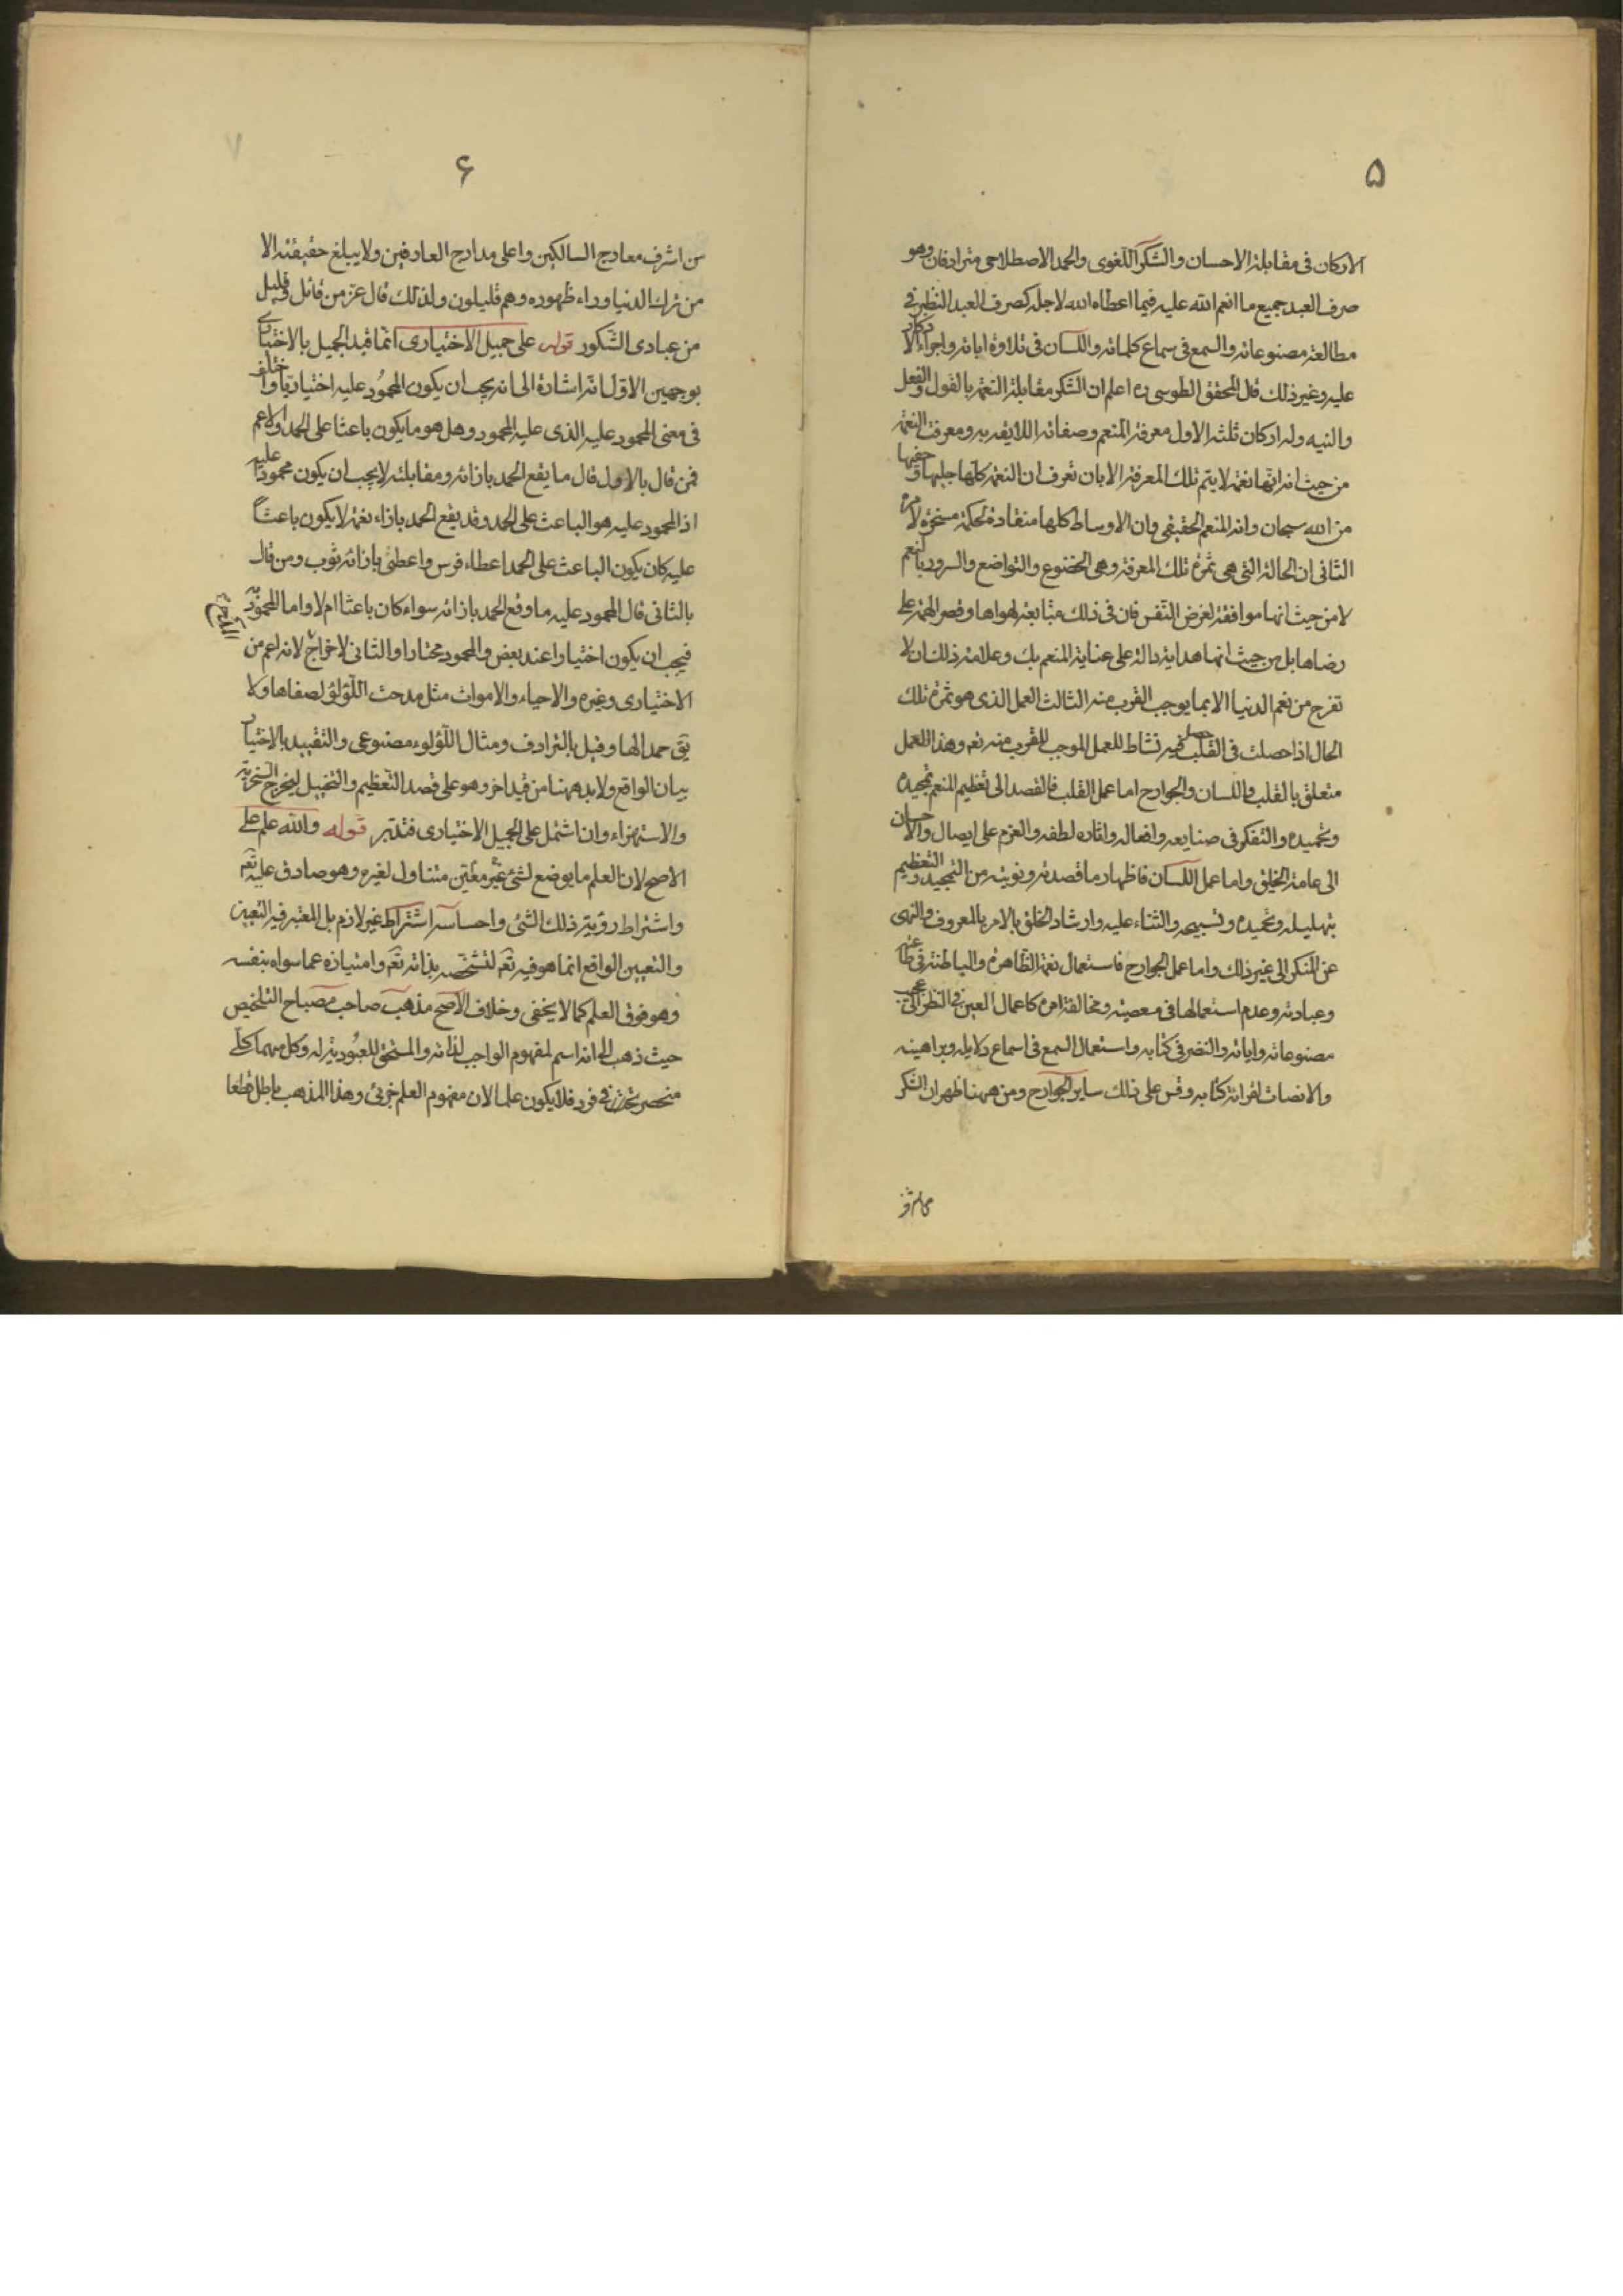 ۵
الاركان فى مقابلة الاحسان والشكر اللغوى والحمد الاصطلاحى مترادفان وهو
صرف العبد جميع ما انعم الله عليه فيما اعطاه الله لاجله كصرف العبد النظر فى
مطالعة مصنوعاته والسمع فى سماع كلماته واللسان فى تلاوة اياته واجراء الاذكار
عليه وغير ذلك قال المحقق الطوسى ره اعلم ان الشكر مقابلة النعمة بالقول والفعل
والنيه وله اركان ثلثه الاول معرفة المنعم وصفاته اللايقه به ومعرفة النعمة
من حيث انه انها نعمة لا يتم تلك المعرفة الا بان تعرف ان النعمة كلها جليها وخفيها
من الله سبحان وانه المنعم الحقيقى وان الاوساط كلها منقادة لحكمه مسخرة لامره
الثانى ان الحالة التى هى ثمرة تلك المعرفة وهى الخضوع والتواضع والسرور بالنعم
لا من حيث انها موافقة لغرض النفس فان فى ذلك متابعة لهواها وقصر الهمة على
رضاها بل من حيث انها هداية دالة على عناية المنعم بك وعلامة ذلك ان لا
تفرح من نعم الدنيا الا بما يوجب القرب منه الثالث العمل الذى هو ثمرة تلك
الحال اذا حصلت فى القلب حصل فيه نشاط للعمل الموجب للقرب منه تعه وهذا العمل
متعلق بالقلب واللسان والجوارح اما عمل القلب فالقصد الى تعظيم المنعم تمجيده
وتحميده والتفكر فى صنايعه وافعاله واثاره لطفه والعزم على ايصال والاحسان
الى عامة الخلق واما عمل اللسان فاظهار ما قصدته ونويته من التمجيد والتعظيم
بتهليله وتحميده وتسبيحه والثناء عليه وارشاد الخلق بالامر بالمعروف والنهى
عن المنكر الى غير ذلك واما عمل الجوارح فاستعمال نعمة الظاهرة والباطنة فى طاعته
وعبادته وعدم استعمالها فى معصيته ومخالفة امره كاعمال العين فى النظر الى عجيب
مصنوعاته واياته والنضر فى كتابه واستعمال السمع فى اسماع دلايله وبراهينه
والانصات لقرائة كتابه وقس على ذلك ساير الجوارح ومن ههنا ظهر ان الشكر
۶
من اشرف معارج السالكين واعلى مدارج العارفين ولا يبلغ حقيقته الا
من ترك الدنيا وراء ظهوره وهم قليلون ولذلك قال عز من قائل وقليل
من عبادى الشكور قوله على جميل الاختيارى انما قيد الجميل بالاختيارى
بوجهين الاول انه اشارة الى انه يجب ان يكون المحمود عليه اختياريا واختلف
فى معنى المحمود عليه الذى عليه المحمود وهل هو ما يكون باعثا على الحمد والاعم
فمن قال بالاول قال ما يقع الحمد بازائه ومقابلته لا يجب ان يكون محمودا عليه
اذ المحمود عليه هو الباعث على الحمد وقد يقع الحمد بازاء نعمة لا يكون باعثاً
عليه كان يكون الباعث على الحمد اعطاء فرس واعطى بازائه ثوب ومن قال
بالثانى قال المحمود عليه ما وقع الحمد بازائه سواء كان باعثا ام لا واما المحمود به
فيجب ان يكون اختيارا عند بعض والمحمود مختارا والثانى لاخراج لانه اعم من
المدح
الاختيارى وغيره والاحياء والاموات مثل مدحت اللؤلؤ لصفاها ولا
يق حمدالها وقيل بالترادف ومثال اللؤلوء مصنوعى والتقييد بالاختيار
بيان الواقع ولابد ههنا من قيد اخر وهو على قصد التعظيم والتبجيل ليخرج السخرية
والاستهزاء وان اشتمل على الجميل الاختيارى فتدبر قوله والله علم على
الاصح لان العلم ما يوضع لشئ غير معين متناول لغيره وهو صادق عليه تعه
واشتراط روية ذلك الشئ واحساسه اشتراط غير لازم بل المعتبر فيه التعيين
والتعيين الواقع انما هو فيه تعه لتشخصه بذاته تعه وامتيازه عما سواه بنفسه
وهو فوق العلم كما لا يخفى وخلاف الاصح مذهب صاحب مصباح التلخيص
حيث ذهب الى انه اسم لمفهوم الواجب لذاته والمستحق للعبودية له وكل منهما كلى
منحصر فى فرد فلا يكون علما لان مفهوم العلم جزئى وهذا المذهب باطل قطعا